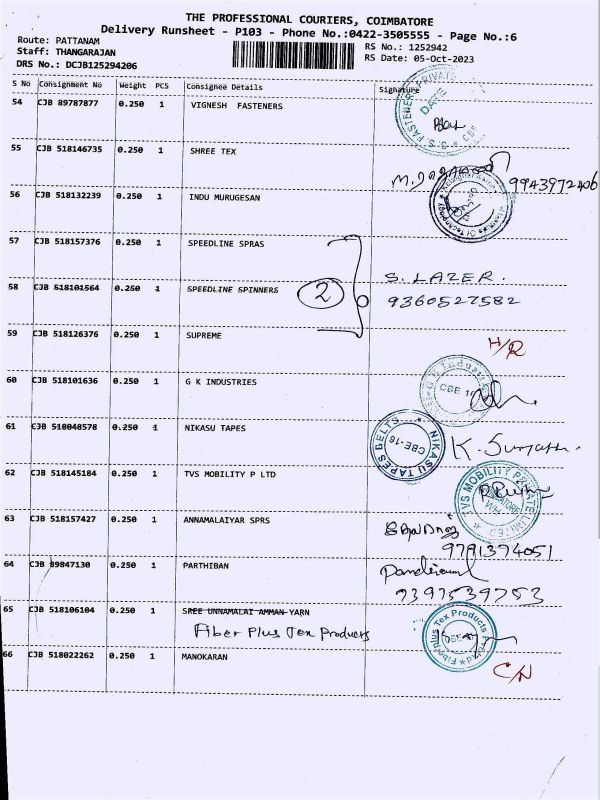 THE PROFESSIONAL COURIERS, COIMBATORE
Delivery Runsheet - P103 - Phone No.:0422-3505555 - Page No.:6
Route: PATTANAM
Staff: THANGARAJAN
DRS No.: DCJB125294206
RS No.: 1252942
RS Date: 05-Oct-2023
S No Consignment No Weight PCS Consignee Details Signature
54 CJB 89787877 0.250 1 VIGNESH FASTENERS
DATE
55 CJB 518146735 0.250 1 SHREE TEX
9943972406
56 CJB 518132239 0.250 1 INDU MURUGESAN
57 CJB 518157376 0.250 1 SPEEDLINE SPRAS
2
S. LAZER.
58 CJB 518101564 0.250 1 SPEEDLINE SPINNERS
9360527582
59 CJB 518126376 0.250 1 SUPREME
H/R
60 CJB 518101636 0.250 1 G K INDUSTRIES
CBE 16
61 CJB 518048578 0.250 1 NIKASU TAPES
NIKASU TAPES BELTS
CBE-16
62 CJB 518145184 0.250 1 TVS MOBILITY P LTD
TVS MOBILITY PRIVATE LIMITED
63 CJB 518157427 0.250 1 ANNAMALAIYAR SPRS
9791374051
64 CJB 89847130 0.250 1 PARTHIBAN
9397539753
65 CJB 518106104 0.250 1 SREE UNNAMALAI AMMAN YARN
Fiber Plus Tex Products
66 CJB 518022262 0.250 1 MANOKARAN